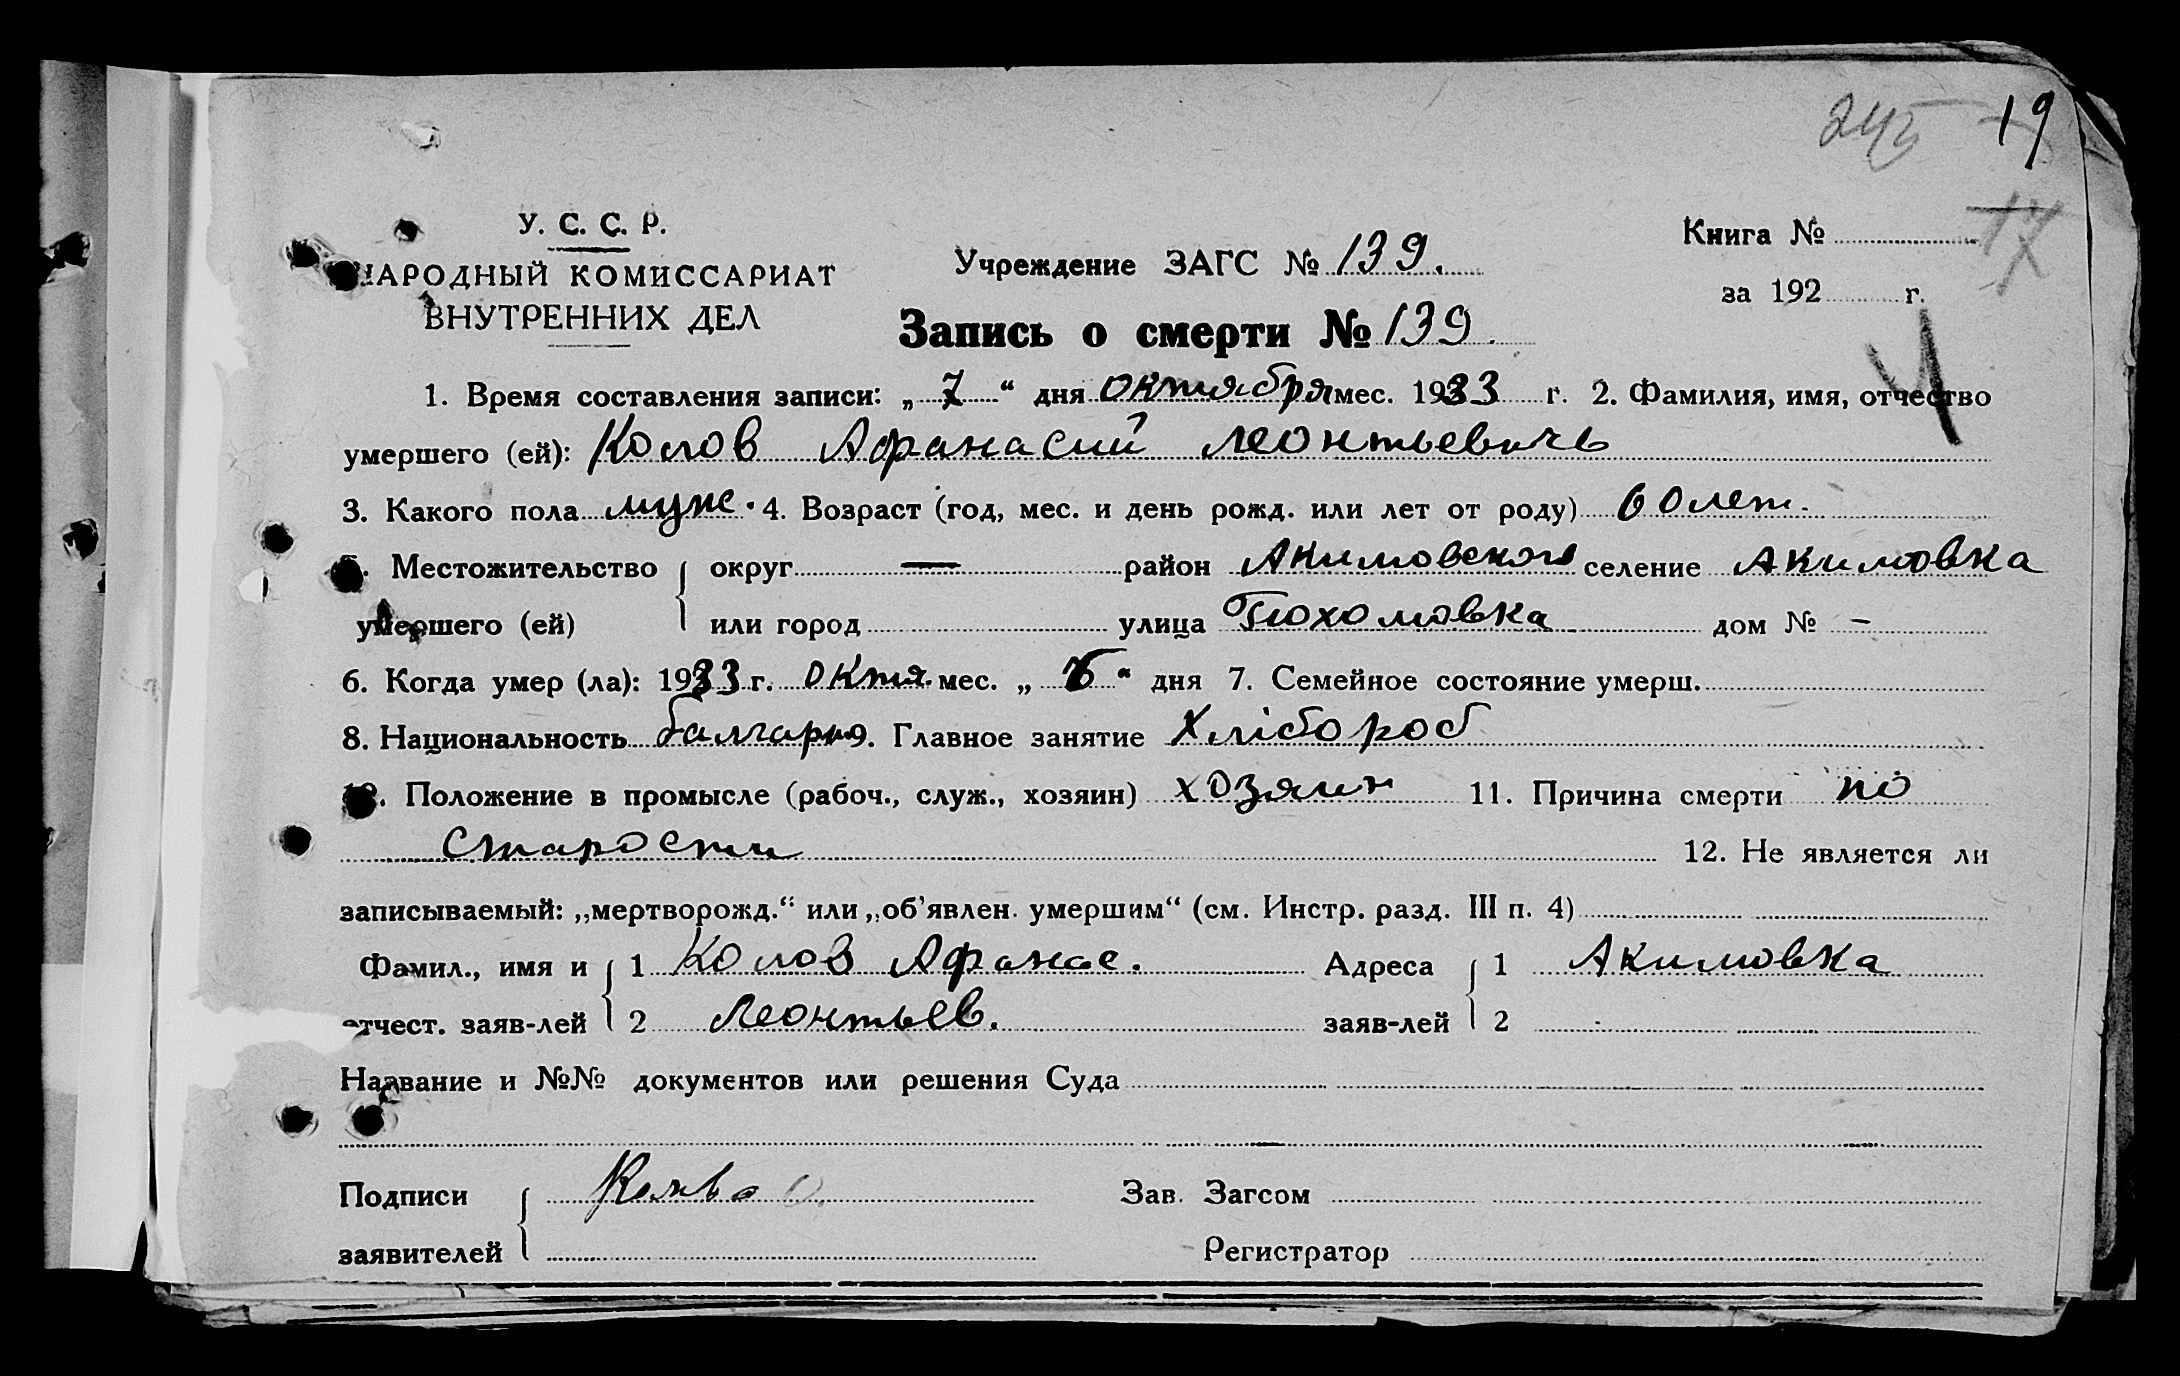 19
У. С. С. Р.
НАРОДНЫЙ КОМИССАРИАТ
ВНУТРЕННИХ ДЕЛ
Учреждение ЗАГС № 139.
Книга №
за 192 г.
Запись о смерти № 139.
1. Время составления записи: „ 7 “ дня октября мес. 1933 г. 2. Фамилия, имя, отчество
умершего (ей): Колов Афанасий Леонтьевичь
3. Какого пола муж. 4. Возраст (год, мес. и день рожд. или лет от роду) 60 лет.
5. Местожительство { округ — район Акимовского селение Акимовка
умершего (ей) или город улица дом № –
6. Когда умер (ла): 1933 г. октя. мес. „ 6 “ дня 7. Семейное состояние умерш.
8. Национальность 9. Главное занятие Хлібороб
10. Положение в промысле (рабоч., служ., хозяин) хозяин 11. Причина смерти по
старости 12. Не является ли
записываемый: „мертворожд.“ или „об’явлен. умершим“ (см. Инстр. разд. III п. 4)
Фамил., имя и { 1 Колов Афанас. Адреса { 1 Акимовка
отчест. заяв-лей 2 Леонтьев. заяв-лей 2
Название и №№ документов или решения Суда
Подписи { Зав. Загсом
заявителей Регистратор